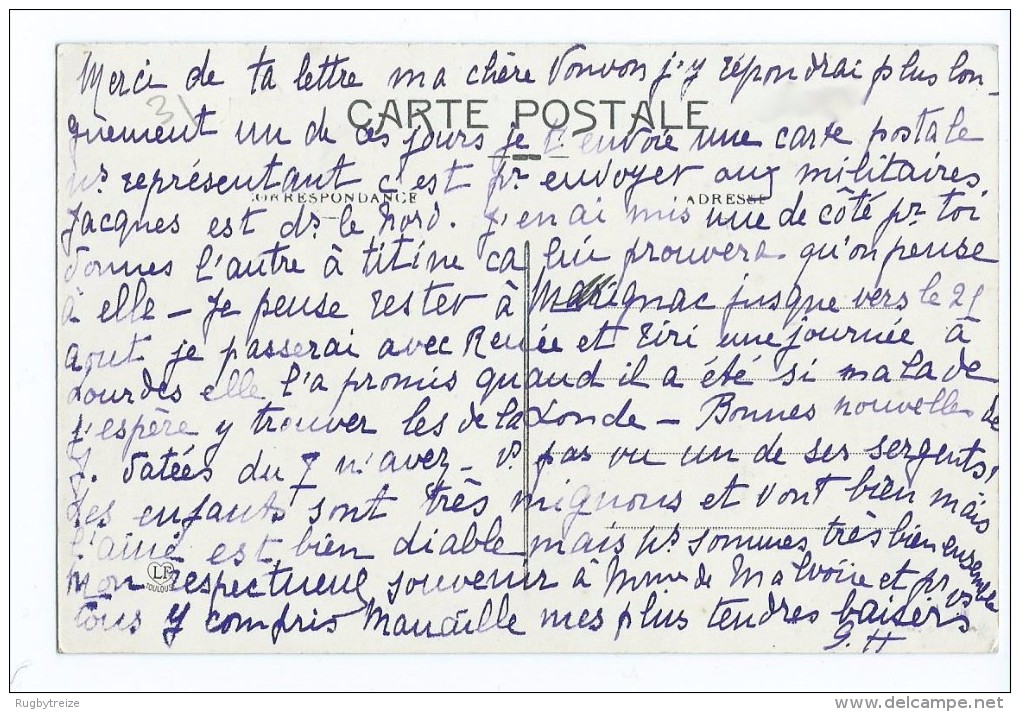 Merci de ta lettre ma chère Vonvon j'y répondrai plus lon-
31
CARTE POSTALE
guement un de ces jours je t'envoie une carte postale
ns représentant c'est pr envoyer aux militaires.
CORRESPONDANCE
ADRESSE
Jacques est ds le Nord. J'en ai mis une de côté pr toi
donnes l'autre à titine ca lui prouvera qu'on pense
à elle - Je pense rester à Marignac jusque vers le 25
aout je passerai avec Renée et Riri une journée à
Lourdes elle l'a promis quand il a été si malade
j'espère y trouver les de la Londe - Bonnes nouvelles de
J. datées du 7 n'avez - vs pas vu un de ses sergents?
Les enfants sont très mignons et vont bien mais
l'ainé est bien diable mais ns sommes très bien ensemble
LF
TOULOUSE
Mon respectueux souvenir à Mme de Malvoire et pr vs
tous y compris Manaille mes plus tendres baisers
G. H
Rugbytreize
www.delcampe.net